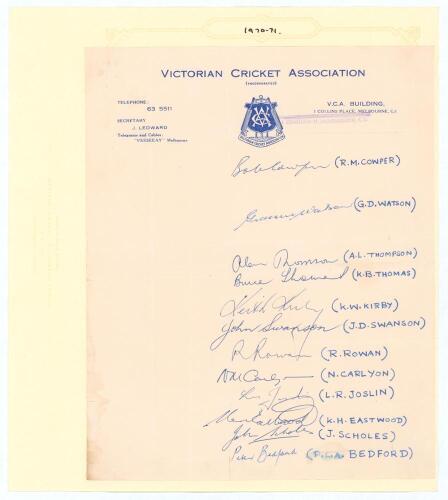 1970-71.
VICTORIAN CRICKET ASSOCIATION
(INCORPORATED)
TELEPHONE:
63 5511
SECRETARY
J. LEDWARD
Telegrams and Cables:
"VERSEEAY" Melbourne
V.C.A. BUILDING,
1 COLLINS PLACE, MELBOURNE, C.1
Bob Cowper (R.M. COWPER)
Graeme Watson (G.D. WATSON)
Alan Thomson (A.L. THOMPSON)
Bruce Thomas (K.B. THOMAS)
Keith Kirby (K.W. KIRBY)
John Swanson (J.D. SWANSON)
R Rowan (R. ROWAN)
N M Carlyon (N. CARLYON)
Les Joslin (L.R. JOSLIN)
Ken Eastwood (K.H. EASTWOOD)
John Scholes (J. SCHOLES)
Peter Bedford BEDFORD)